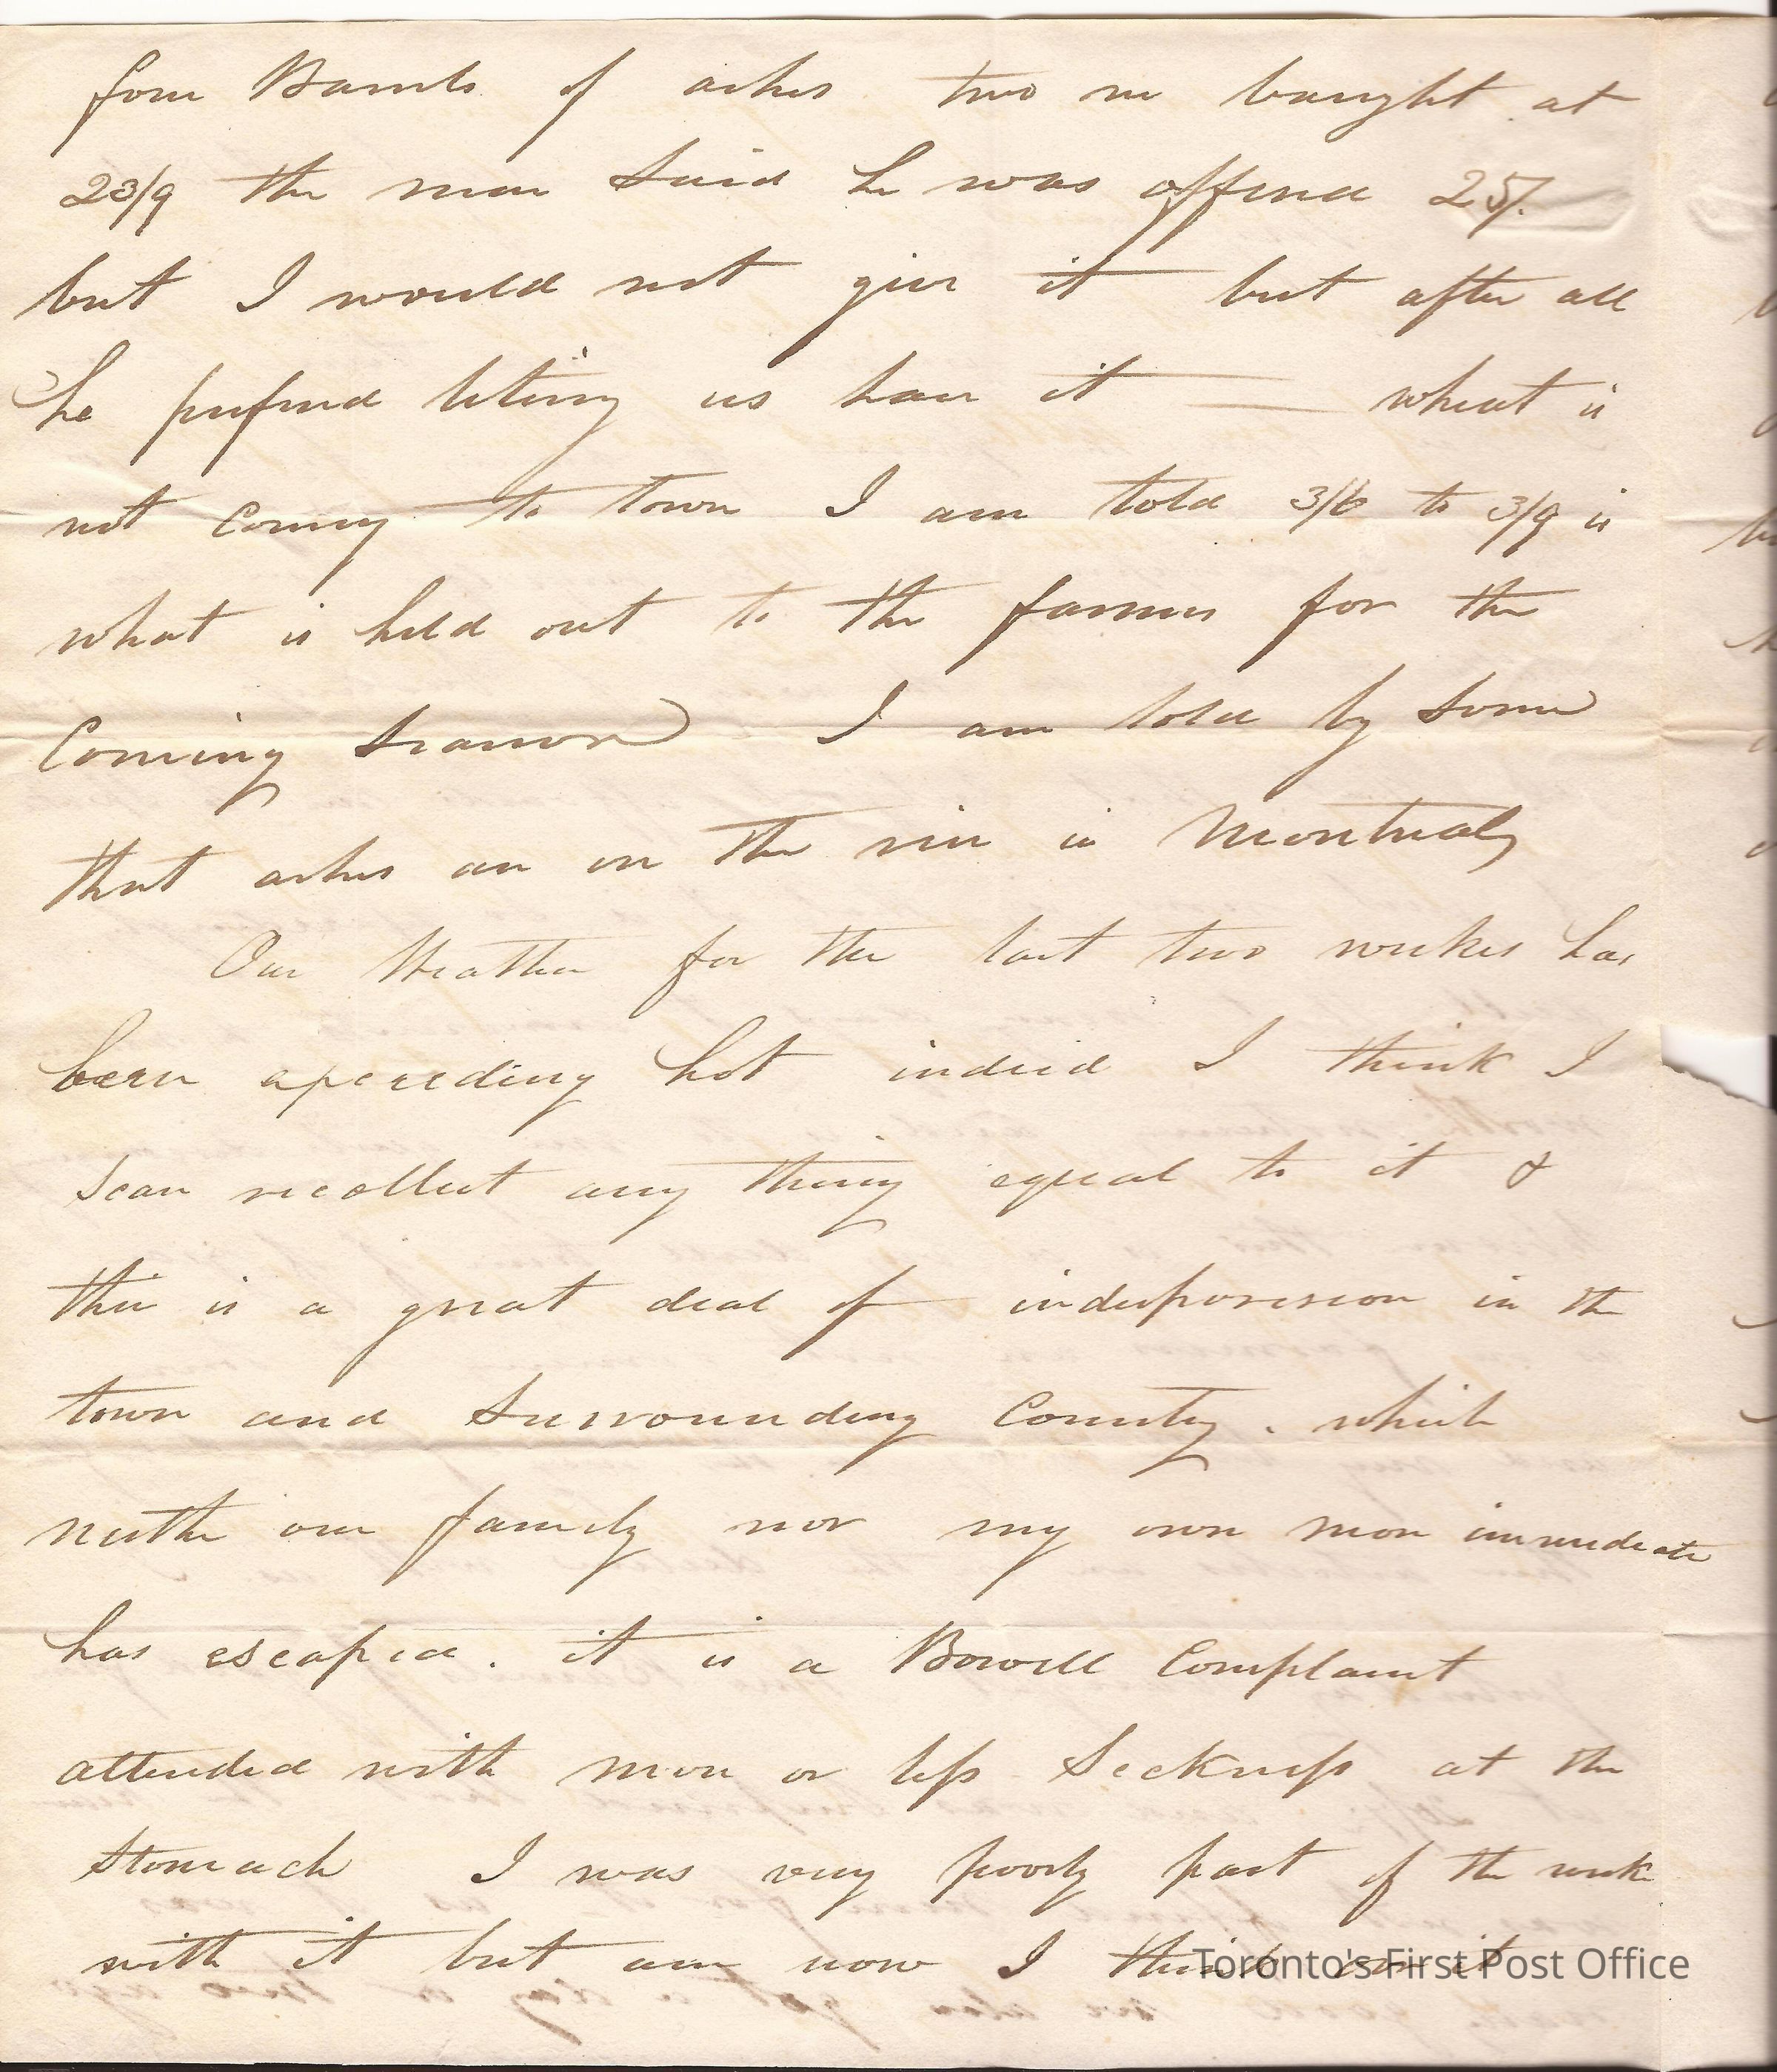 four Barrels of ashes two we bought at
23/9 the man Said he was offered 25/.
but I would not give it but after all
he prefered leting us have it — wheat is
not Coming to town I am told 3/6 to 3/9 is
what is held out to the farmers for the
Coming Season I am told by some
that ashes are on the rise in Montreal
Our Weather for the last two weekes has
been exceeding hot indeed I think I
scarc recollect any thing equal to it &
ther is a great deal of indisposision in the
town and Surrounding County. which
neither our family nor my own more immediate
has escaped. it is a Bowell Complaint
attended with more or less Seckness at the
Stomach I was very poorly part of the week
with it but am now I think
Toronto's First Post Office